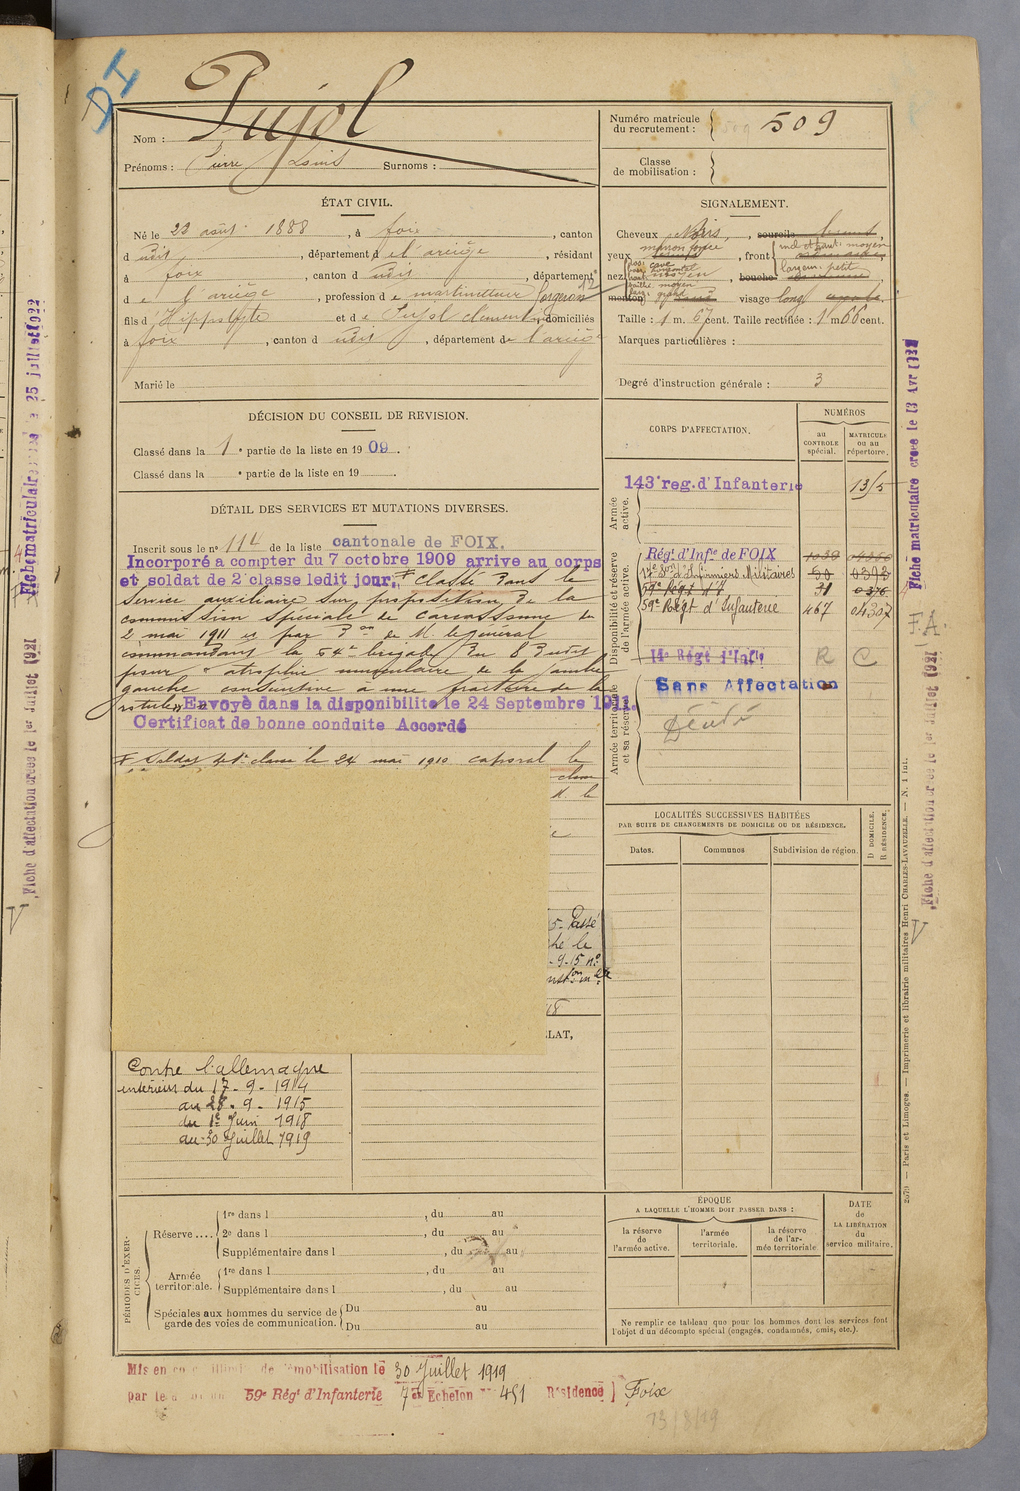 DI
Nom : Pujol
Prénoms : Pierre Louis Surnoms :
Numéro matricule du recrutement : 509
Classe de mobilisation :
ÉTAT CIVIL.
Né le 23 août 1888, à foix, canton
d udit, département d e l'ariège, résidant
à foix, canton d udit, département
d e l'ariège, profession d e martineteur forgeron
fils d' Hippolyte et d e Pujol clementine, domiciliés
à foix, canton d udit, département de l'ariège
Marié le
SIGNALEMENT.
Cheveux Noirs, sourcils
yeux marron foncé, front
nez moyen, bouche
menton visage long
Taille : 1 m. 67 cent. Taille rectifiée : 1 m 66 cent.
Marques particulières :
Degré d'instruction générale : 3
DÉCISION DU CONSEIL DE REVISION.
Classé dans la 1e partie de la liste en 1909.
Classé dans la e partie de la liste en 19
DÉTAIL DES SERVICES ET MUTATIONS DIVERSES.
Inscrit sous le no 114 de la liste cantonale de FOIX.
Incorporé a compter du 7 octobre 1909 arrive au corps
et soldat de 2e classe ledit jour. classé dans le
service auxiliaire sur proposition de la
commission spéciale de Carcassonne du
2 mai 1911 et par don de M. le général
commandant la 64e brigade du 8 dudit
pour atrophie musculaire de la jambe
gauche consécutive a une fracture de la
rotule. Envoyé dans la disponibilité le 24 Septembre 1911.
Certificat de bonne conduite Accordé
Soldat de 1e classe le 24 mai 1910 caporal le
classe
M. le
5. Passé
le
-9-15 no
18
LAT,
Contre l'allemagne
intérieur du 17-9-1914
au 28-9-1915
du 1er Juin 1918
au 30 Juillet 1919
CORPS D'AFFECTATION.
NUMÉROS
au CONTROLE spécial.
MATRICULE ou au répertoire.
Armée active.
143e reg. d'Infanterie 1315
Disponibilité et réserve de l'armée active.
Régt d'Infie de FOIX 1039
17e Son d'Infirmiers Militaires
59e Régt d'I 31 0376
59e Régt d'Infanterie 467 04307
14e Régt d'Infie R C
Armée territoriale et sa réserve.
Sans Affectation
LOCALITÉS SUCCESSIVES HABITÉES
PAR SUITE DE CHANGEMENTS DE DOMICILE OU DE RÉSIDENCE.
Dates.
Communes
Subdivision de région.
D DOMICILE.
R RÉSIDENCE.
PÉRIODES D'EXERCICES.
Réserve....
1re dans l , du au
2e dans l , du au
Supplémentaire dans l , du au
Armée territoriale.
1re dans l , du au
Supplémentaire dans l , du au
Spéciales aux hommes du service de garde des voies de communication.
Du au
Du au
ÉPOQUE
A LAQUELLE L'HOMME DOIT PASSER DANS :
la réserve de l'armée active.
l'armée territoriale.
la réserve de l'armée territoriale
DATE de LA LIBÉRATION du service militaire.
Ne remplir ce tableau que pour les hommes dont les services font
l'objet d'un décompte spécial (engagés, condamnés, omis, etc.).
Mis en congé illimité de démobilisation le 30 Juillet 1919
par le 59e Régt d'Infanterie 7e Echelon No 451 Résidence Foix
13/8/19
2579 — Paris et Limoges. — Imprimerie et librairie militaires Henri CHARLES-LAVAUZELLE. — N. 1 int.
Fiche matriculaire créée le 13 Avr 1922
Fiche d'affectation créée le 1er Juillet 1921
F.A.
V
Fiche matriculaire créée le 25 juillet 1922
Fiche d'affectation créée le 1er Juillet 1921
V